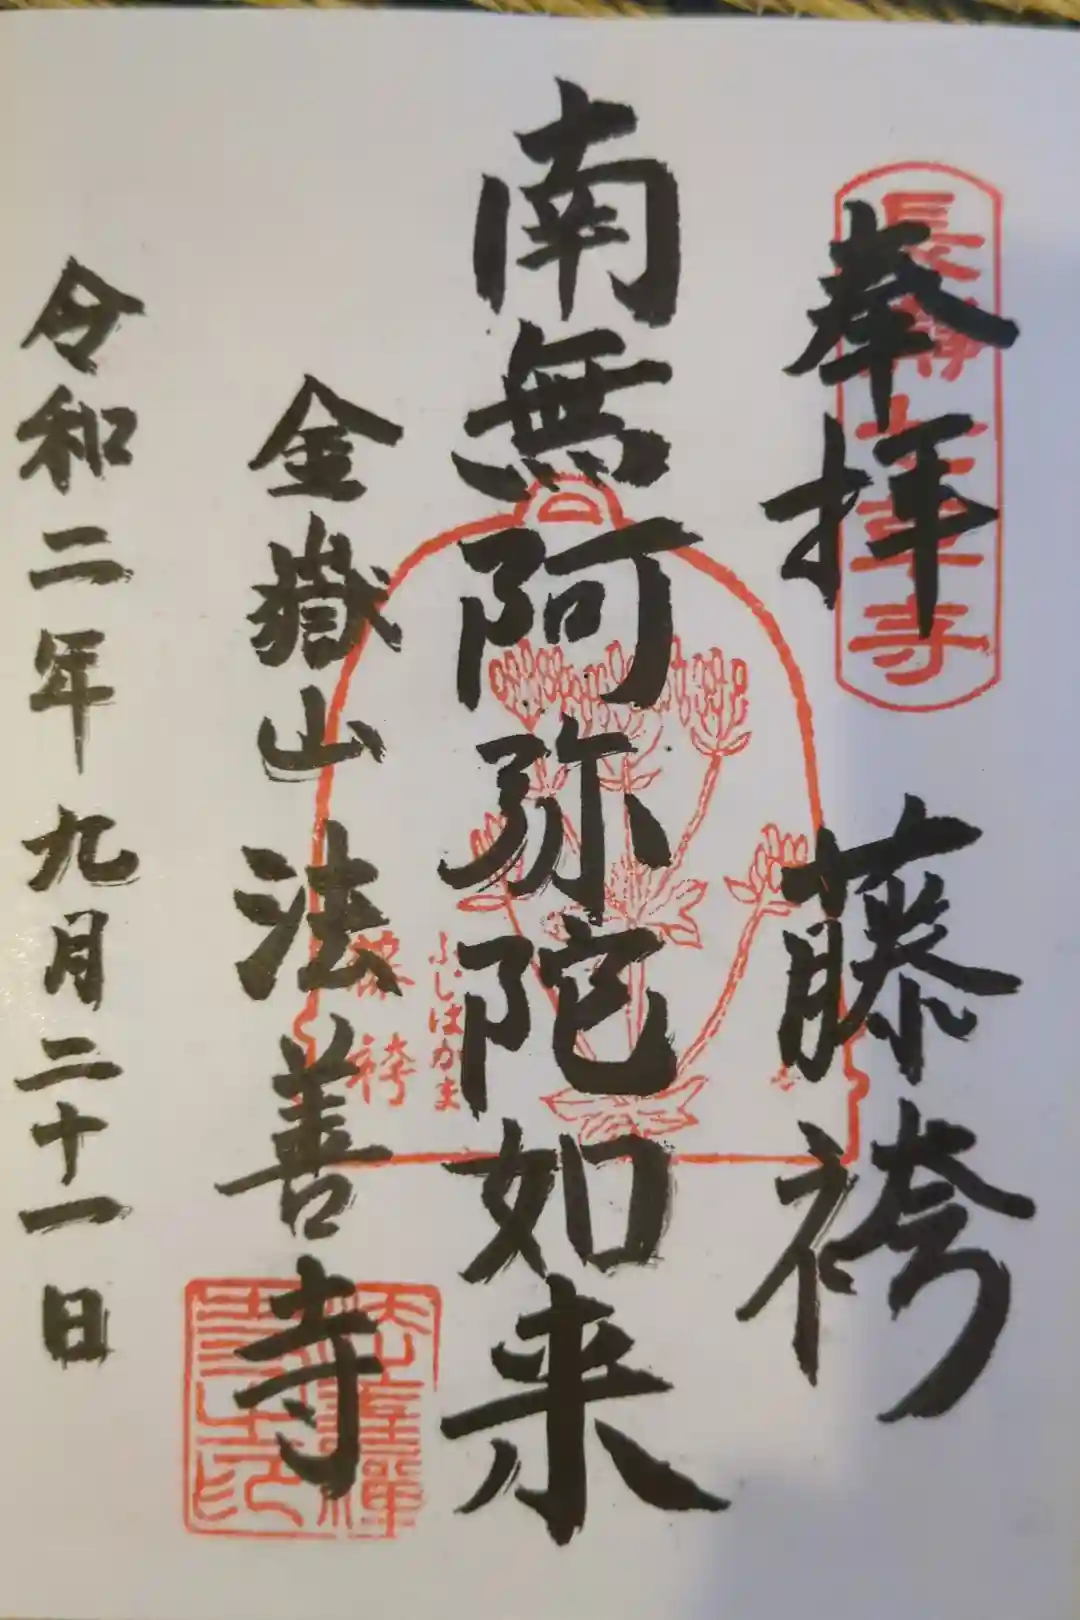 奉拝　藤袴
長瀞七草寺
南無阿弥陀如来
ふじばかま
藤袴
金嶽山　法善寺
令和二年九月二十一日